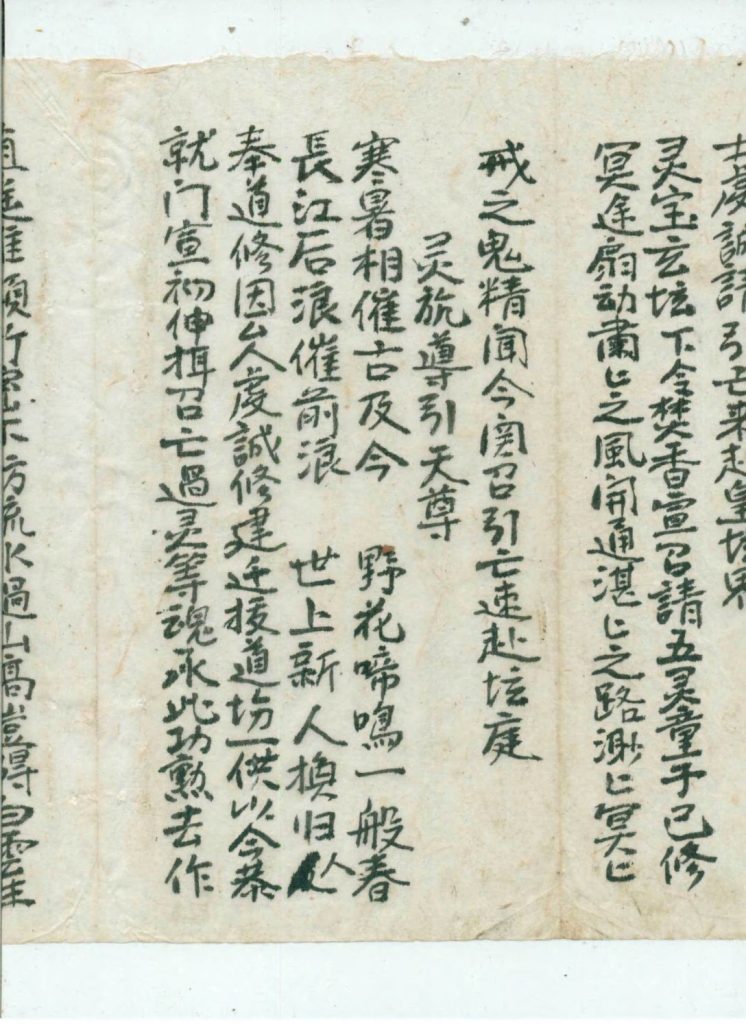 虔誠請引亡来赴皇坛界
灵宝玄坛下令焚香宣召請五灵童子已修
冥途扇动肅匕之風開通湛匕之路渺匕冥匕
戒之鬼精闻今召引亡速赴坛庭
灵旐導引天尊
寒暑相催古及今 野花啼鳴一般春
長江后浪催前浪 世上新人换归
奉道修因厶人虔誠修建迁拔道场一供以今恭
就门宣初伸召亡過灵等魂承此功勲去作
方流水過山高豈得白雲